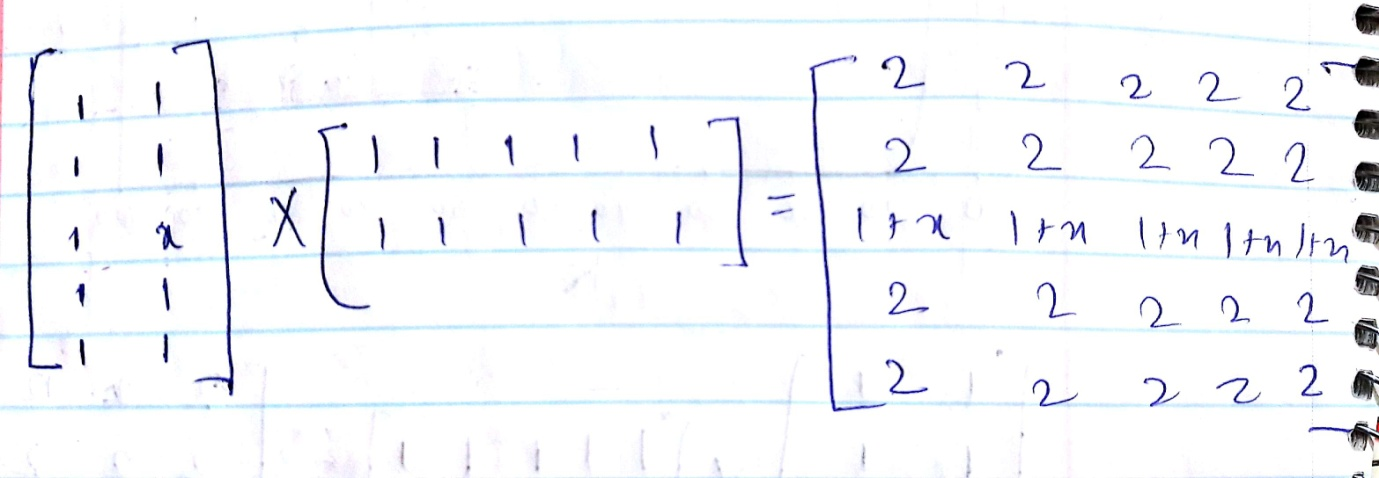 1 1
1 1
1 x
1 1
1 1
X
1 1 1 1 1
1 1 1 1 1
=
2 2 2 2 2
2 2 2 2 2
1+x 1+x 1+x 1+x 1+x
2 2 2 2 2
2 2 2 2 2